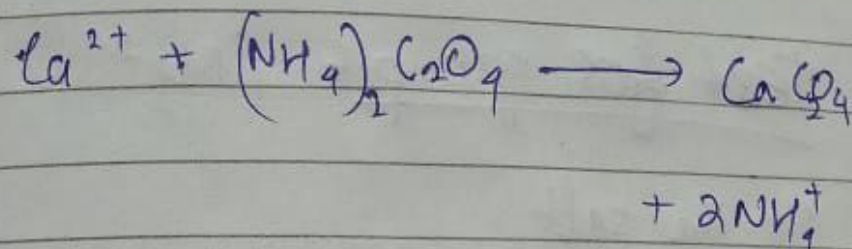 Ca²⁺ + (NH₄)₂ C₂O₄ ⟶ CaC₂O₄
+ 2NH₄⁺